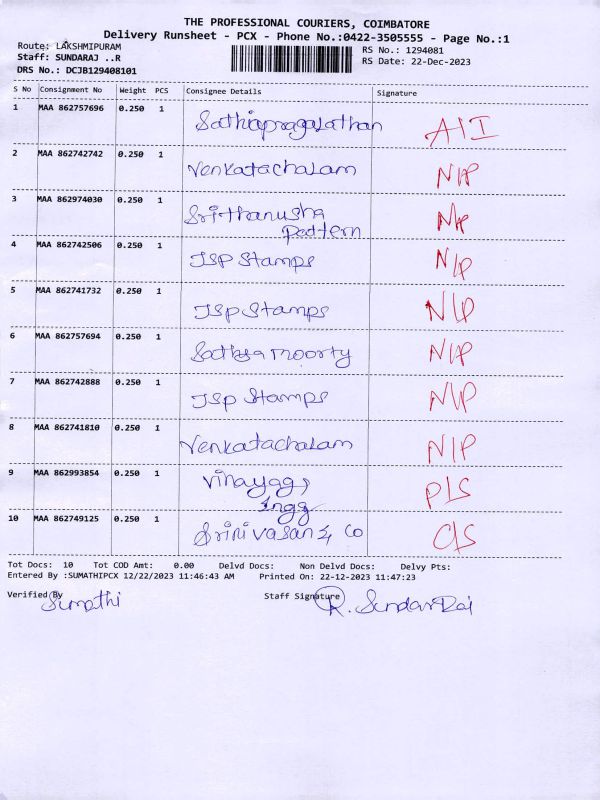 THE PROFESSIONAL COURIERS, COIMBATORE
Delivery Runsheet - PCX - Phone No.:0422-3505555 - Page No.:1
Route: LAKSHMIPURAM RS No.: 1294081
Staff: SUNDARAJ ..R RS Date: 22-Dec-2023
DRS No.: DCJB129408101
S No Consignment No Weight PCS Consignee Details Signature
1 MAA 862757696 0.250 1 Sathiapragalathan A/I
2 MAA 862742742 0.250 1 Venkatachalam N/P
3 MAA 862974030 0.250 1 Srithanusha N/P
Pattern
4 MAA 862742506 0.250 1 JSP Stamps N/P
5 MAA 862741732 0.250 1 JSP Stamps N/P
6 MAA 862757694 0.250 1 Sathya moorty N/P
7 MAA 862742888 0.250 1 JSP Stamps N/P
8 MAA 862741810 0.250 1 Venkatachalam N/P
9 MAA 862993854 0.250 1 Vinayaga P/S
Ingg
10 MAA 862749125 0.250 1 Srinivasan & Co C/S
Tot Docs: 10 Tot COD Amt: 0.00 Delvd Docs: Non Delvd Docs: Delvy Pts:
Entered By :SUMATHIPCX 12/22/2023 11:46:43 AM Printed On: 22-12-2023 11:47:23
Verified By Staff Signature
Sumathi R. SundarRaj